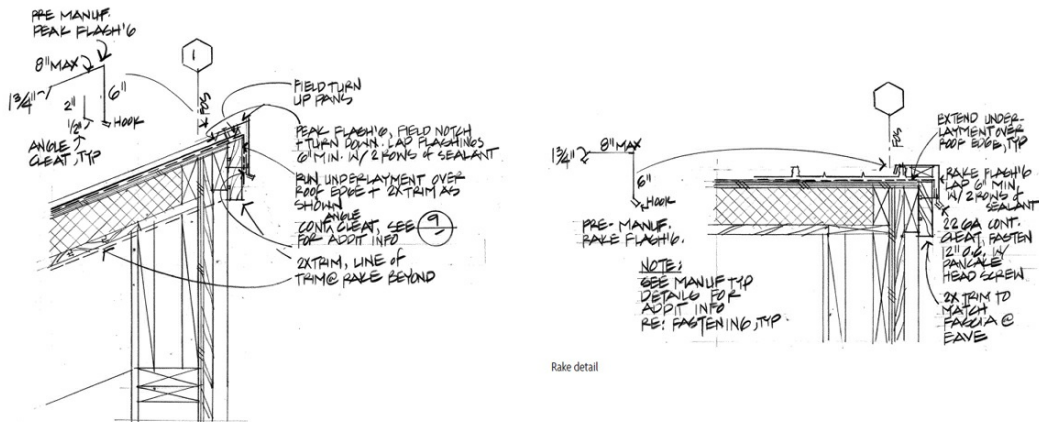 PRE MANUF.
PEAK FLASH'G
8" MAX
1 3/4"
6"
2"
1/2"
HOOK
ANGLE
CLEAT, TYP
1
FOS
FIELD TURN
UP PANS
PEAK FLASH'G, FIELD NOTCH
+ TURN DOWN. LAP FLASHINGS
6" MIN. W/ 2 ROWS OF SEALANT
RUN UNDERLAYMENT OVER
ROOF EDGE + 2X TRIM AS
SHOWN
ANGLE
CONT. CLEAT, SEE 9
FOR ADDIT INFO
2X TRIM, LINE OF
TRIM @ RAKE BEYOND
1 3/4"
8" MAX
6"
HOOK
PRE-MANUF.
RAKE FLASH'G.
NOTE:
SEE MANUF TYP
DETAILS FOR
ADDIT INFO
RE: FASTENING, TYP.
FOS
EXTEND UNDER-
LAYMENT OVER
ROOF EDGE, TYP
RAKE FLASH'G
LAP 6" MIN,
W/ 2 ROWS OF
SEALANT
22 GA CONT.
CLEAT, FASTEN
12" O.C. W/
PANCAKE
HEAD SCREW
2X TRIM TO
MATCH
FASCIA @
EAVE
Rake detail